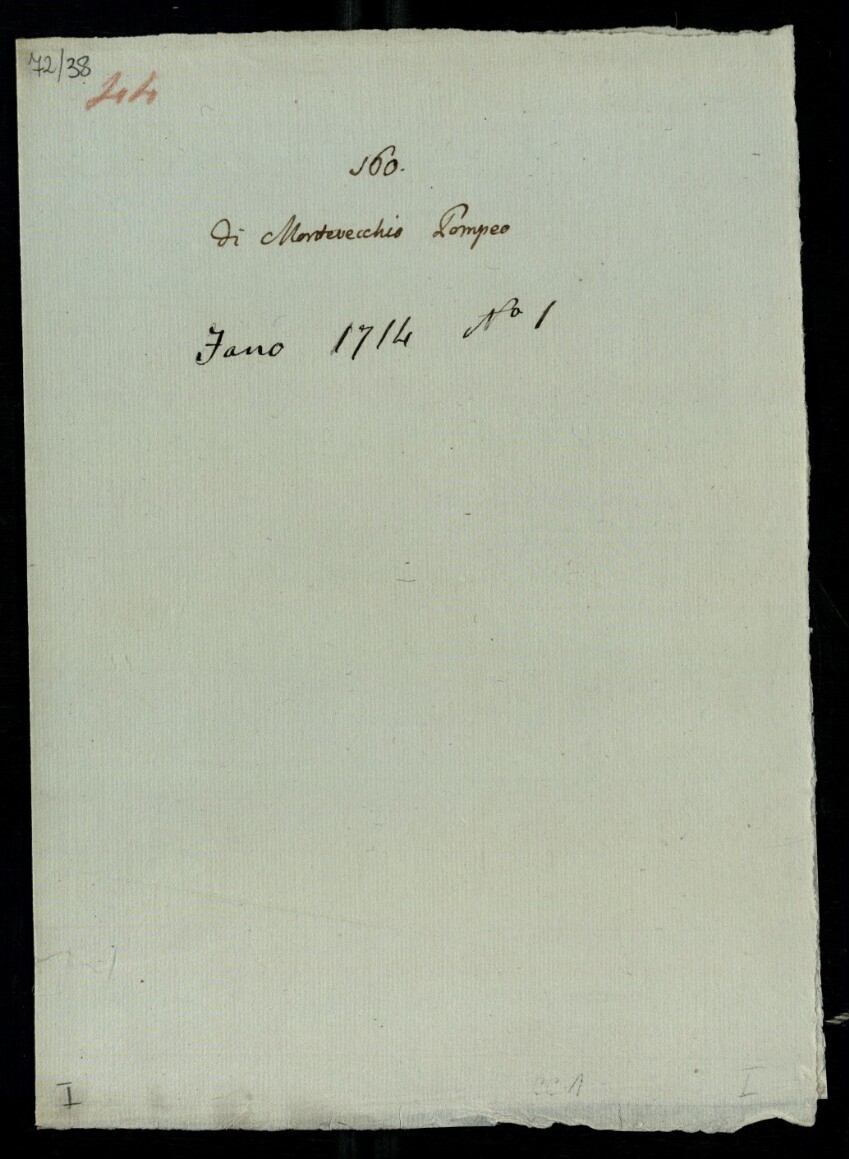 72/38
44
160.
di Montevecchio Pompeo
Fano 1714 Nº 1
I
CC 1
I